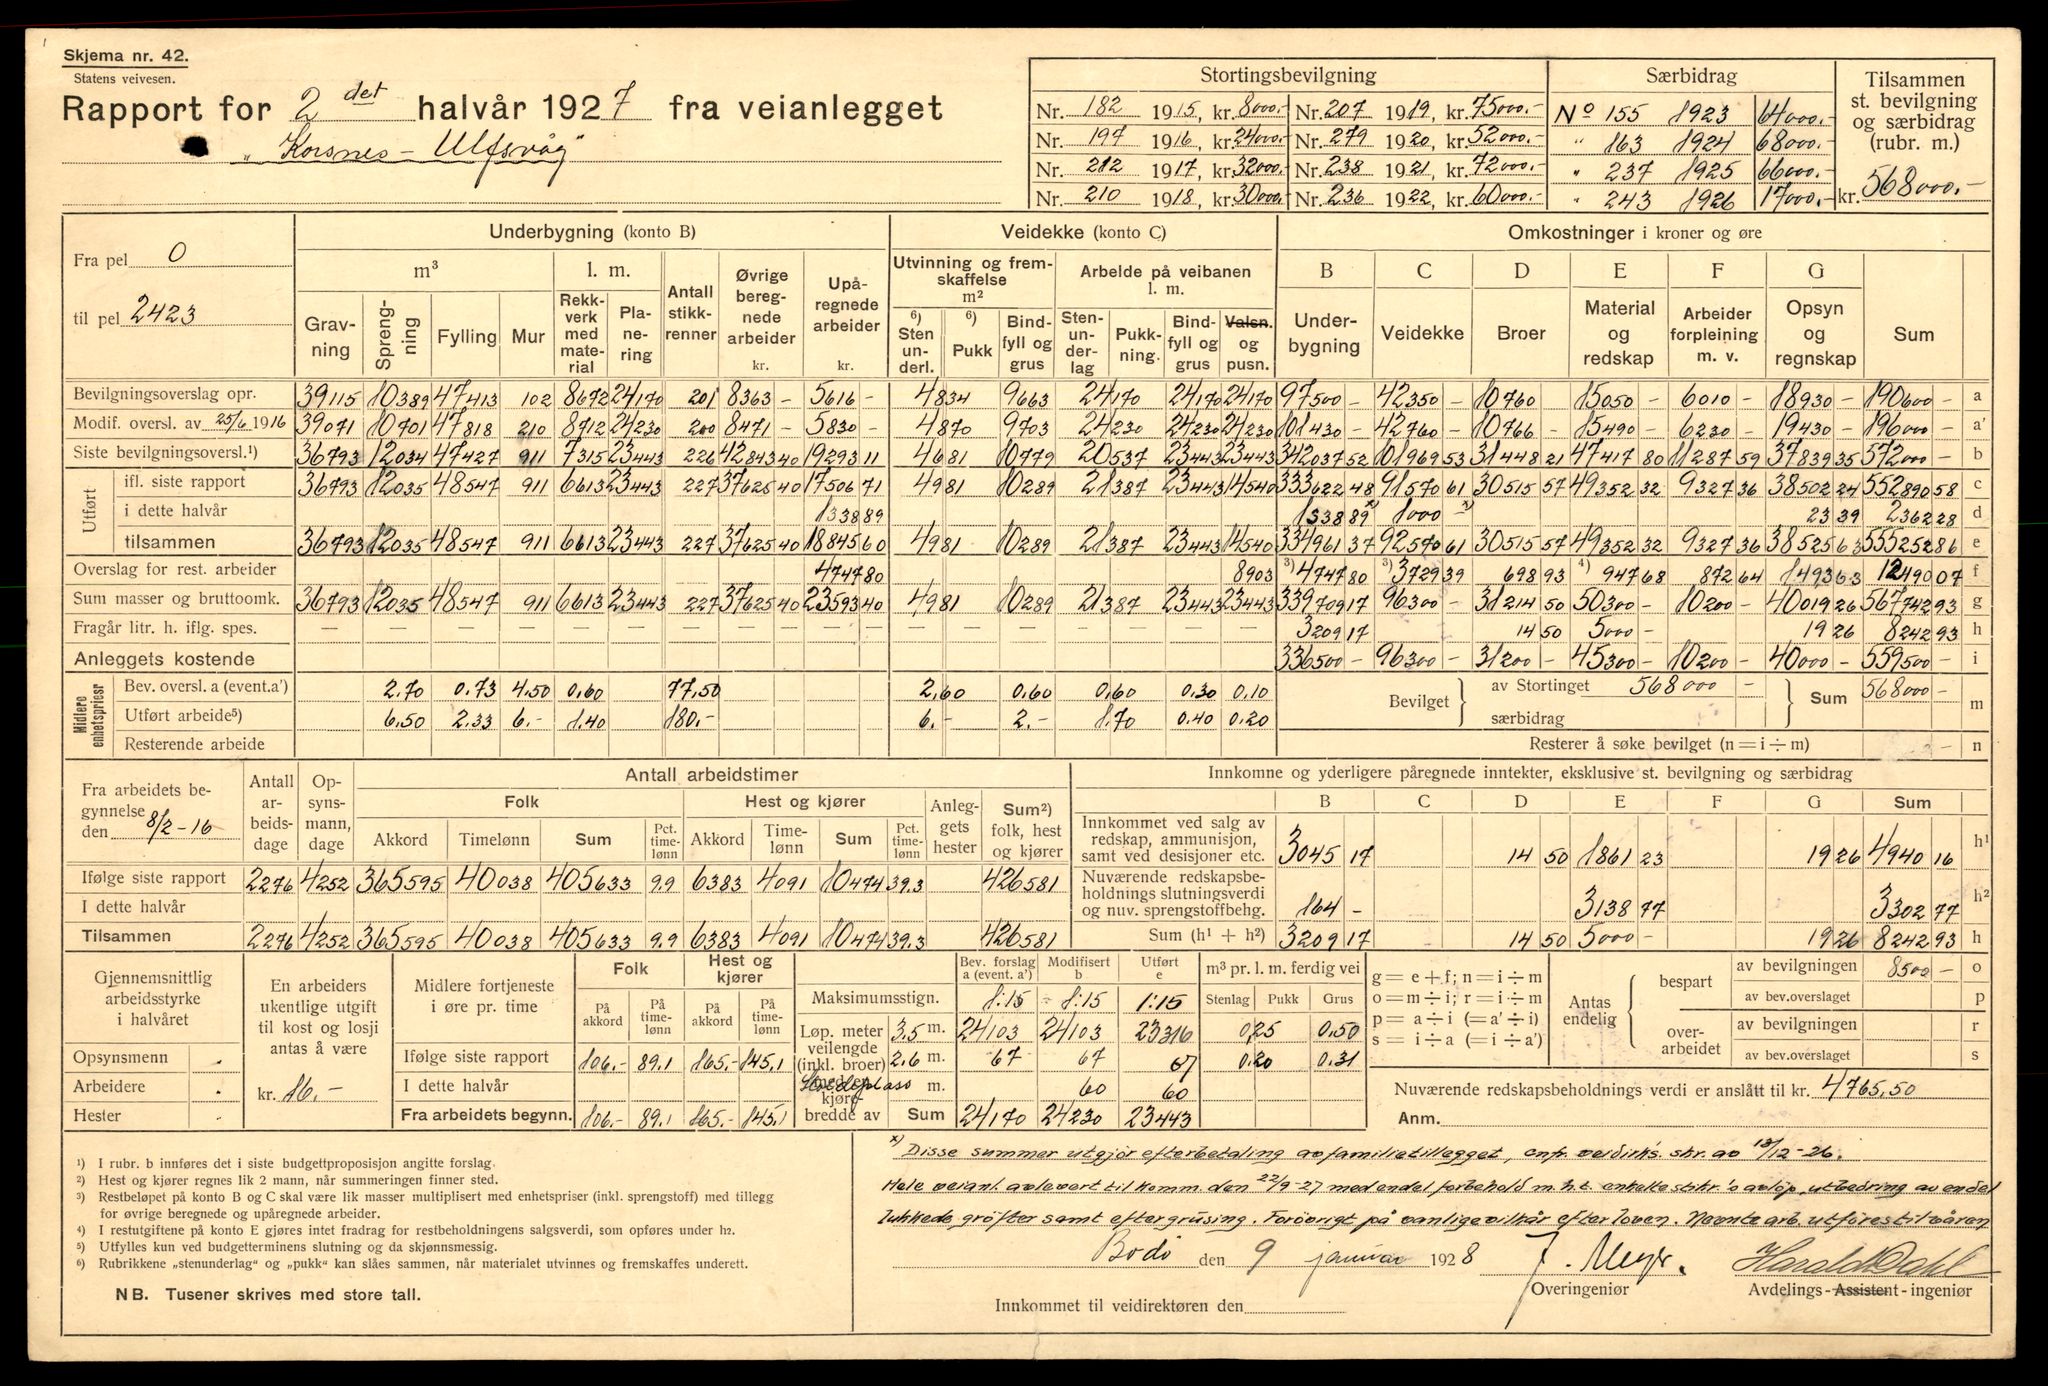 Skjema nr. 42.
Statens veivesen.
Rapport for 2det halvår 1927 fra veianlegget
„Korsnes - Ulfsvåg"
Stortingsbevilgning | Særbidrag | Tilsammen st. bevilgning og særbidrag (rubr. m.)
Nr. 182 1915, kr. 8000.- Nr. 207 1919, kr. 75000.- No 155 1923 64000.-
Nr. 197 1916, kr. 24000.- Nr. 279 1920, kr. 52000.- " 163 1924 68000.-
Nr. 212 1917, kr. 32000.- Nr. 238 1921, kr. 72000.- " 237 1925 66000.-
Nr. 210 1918, kr. 30000.- Nr. 236 1922, kr. 60000.- " 243 1926 17000.- kr. 568000.-
Fra pel 0
til pel 2423
Underbygning (konto B) | Veidekke (konto C) | Omkostninger i kroner og øre
m³ | l. m. | Antall stikkrenner | Øvrige beregnede arbeider kr. | Upåregnede arbeider kr. | Utvinning og fremskaffelse m² | Arbeide på veibanen l. m. | B | C | D | E | F | G
Gravning | Sprengning | Fylling | Mur | Rekkverk med material | Planering | 6) Stenunderl. | 6) Pukk | Bindfyll og grus | Stenunderlag | Pukkning. | Bindfyll og grus | Valsn. og pusn. | Underbygning | Veidekke | Broer | Material og redskap | Arbeider forpleining m. v. | Opsyn og regnskap | Sum
Bevilgningsoverslag opr. 39115 10389 47413 102 8672 24170 201 8363 - 5616 - 4834 9663 24170 24170 24170 97500 - 42350 - 10760 15050 - 6010 - 18930 - 190600 - a
Modif. oversl. av 25/6 1916 39071 10701 47818 210 8712 24230 200 8471 - 5830 - 4870 9703 24230 24230 24230 101430 - 42760 - 10766 15490 - 6230 - 19430 - 196000 - a'
Siste bevilgningsoversl.¹) 36793 12034 47427 911 7315 23443 226 42843 40 19293 11 4681 10779 20537 23443 23443 342037 52 101969 53 31448 21 47417 80 11287 59 37839 35 572000 - b
Utført
ifl. siste rapport 36793 12035 48547 911 6613 23443 227 37625 40 17506 71 4981 10289 21387 23443 14540 333622 48 91570 61 30515 57 49352 32 9327 36 38502 24 552890 58 c
i dette halvår 1338 89 1338 89 x) 1000 x) 23 39 2362 28 d
tilsammen 36793 12035 48547 911 6613 23443 227 37625 40 18845 60 4981 10289 21387 23443 14540 334961 37 92570 61 30515 57 49352 32 9327 36 38525 63 555252 86 e
Overslag for rest. arbeider 4747 80 8903 ³) 4747 80 ³) 3729 39 698 93 ⁴) 947 68 872 64 1493 63 12490 07 f
Sum masser og bruttoomk. 36793 12035 48547 911 6613 23443 227 37625 40 23593 40 4981 10289 21387 23443 23443 339709 17 96300 - 31214 50 50300 - 10200 - 40019 26 567742 93 g
Fragår litr. h. iflg. spes. 3209 17 14 50 5000 - 19 26 8242 93 h
Anleggets kostende 336500 - 96300 - 31200 - 45300 - 10200 - 40000 - 559500 - i
Midlere enhetspriser
Bev. oversl. a (event.a') 2.70 0.73 4.50 0.60 77.50 2.60 0.60 0.60 0.30 0.10
Utført arbeide⁵) 6.50 2.33 6.- 1.40 180.- 6.- 2.- 1.70 0.40 0.20
Resterende arbeide
Bevilget { av Stortinget 568000 - særbidrag } Sum 568000 - m
Resterer å søke bevilget (n = i ÷ m) - n
Fra arbeidets begynnelse den 8/2-16
Antall arbeidsdage | Opsynsmann, dage | Antall arbeidstimer
Folk | Hest og kjører | Anleggets hester | Sum²) folk, hest og kjører
Akkord | Timelønn | Sum | Pct. timelønn | Akkord | Timelønn | Sum | Pct. timelønn
Ifølge siste rapport 2276 4252 365595 40038 405633 9.9 6383 4091 10474 39.3 426581
I dette halvår
Tilsammen 2276 4252 365595 40038 405633 9.9 6383 4091 10474 39.3 426581
Innkomne og yderligere påregnede inntekter, eksklusive st. bevilgning og særbidrag
B C D E F G Sum
Innkommet ved salg av redskap, ammunisjon, samt ved desisjoner etc. 3045 17 14 50 1861 23 19 26 4940 16 h¹
Nuværende redskapsbeholdnings slutningsverdi og nuv. sprengstoffbehg. 164 - 3138 77 3302 77 h²
Sum (h¹ + h²) 3209 17 14 50 5000 - 19 26 8242 93 h
Gjennemsnittlig arbeidsstyrke i halvåret
Opsynsmenn
Arbeidere
Hester
En arbeiders ukentlige utgift til kost og losji antas å være
kr. 16.-
Midlere fortjeneste i øre pr. time
Folk | Hest og kjører
På akkord | På timelønn | På akkord | På timelønn
Ifølge siste rapport 106.- 89.1 165.- 145.1
I dette halvår
Fra arbeidets begynn. 106.- 89.1 165.- 145.1
Bev. forslag a (event. a') | Modifisert b | Utført e | m³ pr. l. m. ferdig vei
Maksimumsstign. 1:15 - 1:15 1:15 Stenlag Pukk Grus
Løp. meter veilengde (inkl. broer) med en kjørebredde av
3.5 m. 24103 24103 23316 0.25 0.50
2.6 m. 67 67 67 0.20 0.31
m. 60 60
Sum 24170 24230 23443
g = e + f; n = i ÷ m
o = m ÷ i; r = i ÷ m
p = a ÷ i (= a' ÷ i)
s = i ÷ a (= i ÷ a')
Antas endelig
bespart av bevilgningen 8500 - o
av bev.overslaget p
overarbeidet av bevilgningen r
av bev.overslaget s
Nuværende redskapsbeholdnings verdi er anslått til kr. 4765,50
Anm.
¹) I rubr. b innføres det i siste budgettproposisjon angitte forslag.
²) Hest og kjører regnes lik 2 mann, når summeringen finner sted.
³) Restbeløpet på konto B og C skal være lik masser multiplisert med enhetspriser (inkl. sprengstoff) med tillegg
for øvrige beregnede og upåregnede arbeider.
⁴) I restutgiftene på konto E gjøres intet fradrag for restbeholdningens salgsverdi, som opføres under h2.
⁵) Utfylles kun ved budgetterminens slutning og da skjønnsmessig.
⁶) Rubrikkene „stenunderlag" og „pukk" kan slåes sammen, når materialet utvinnes og fremskaffes underett.
NB. Tusener skrives med store tall.
x) Disse summer utgjør efterbetaling av familietillegget, cnfr. veidirks. skr. av 13/12-26.
Hele veianl. avlevert til komm. den 22/9-27 med endel forbehold m.h.t. enkelte stikkr.'s avløp, utbedring av endel
lukkede grøfter samt eftergrusing. Forøvrigt på vanlige vilkår efter loven. Nevnte arb. utføres til våren
Bodø den 9 januar 1928 J. Meyer. Harald Dahl
Overingeniør Avdelings-Assistent-ingeniør
Innkommet til veidirektøren den